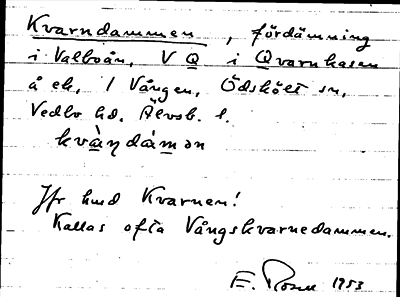 Kvarndammen, fördämning
i Valboån, V Q i Qvarnhasen
å ek. 1 Vången, Ödskölt sn,
Vedbo hd. Älvsb. l.
kvàṇdámən
Jfr hmd Kvarnen!
Kallas ofta Vångskvarnedammen.
E. Rosell 1953